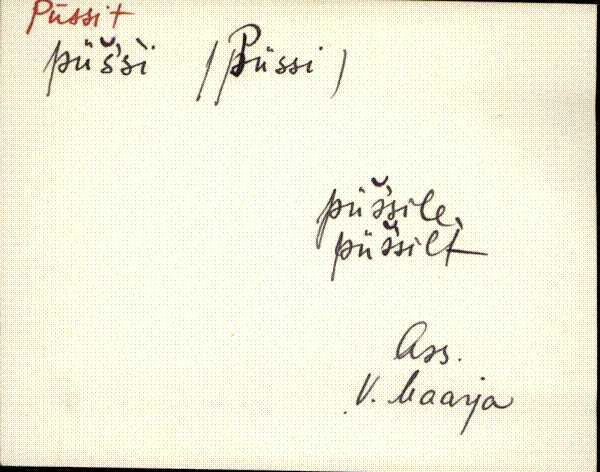 Püssit
püšši (Püssi)
püššile,
püššilt
Ass.
V. Maarja